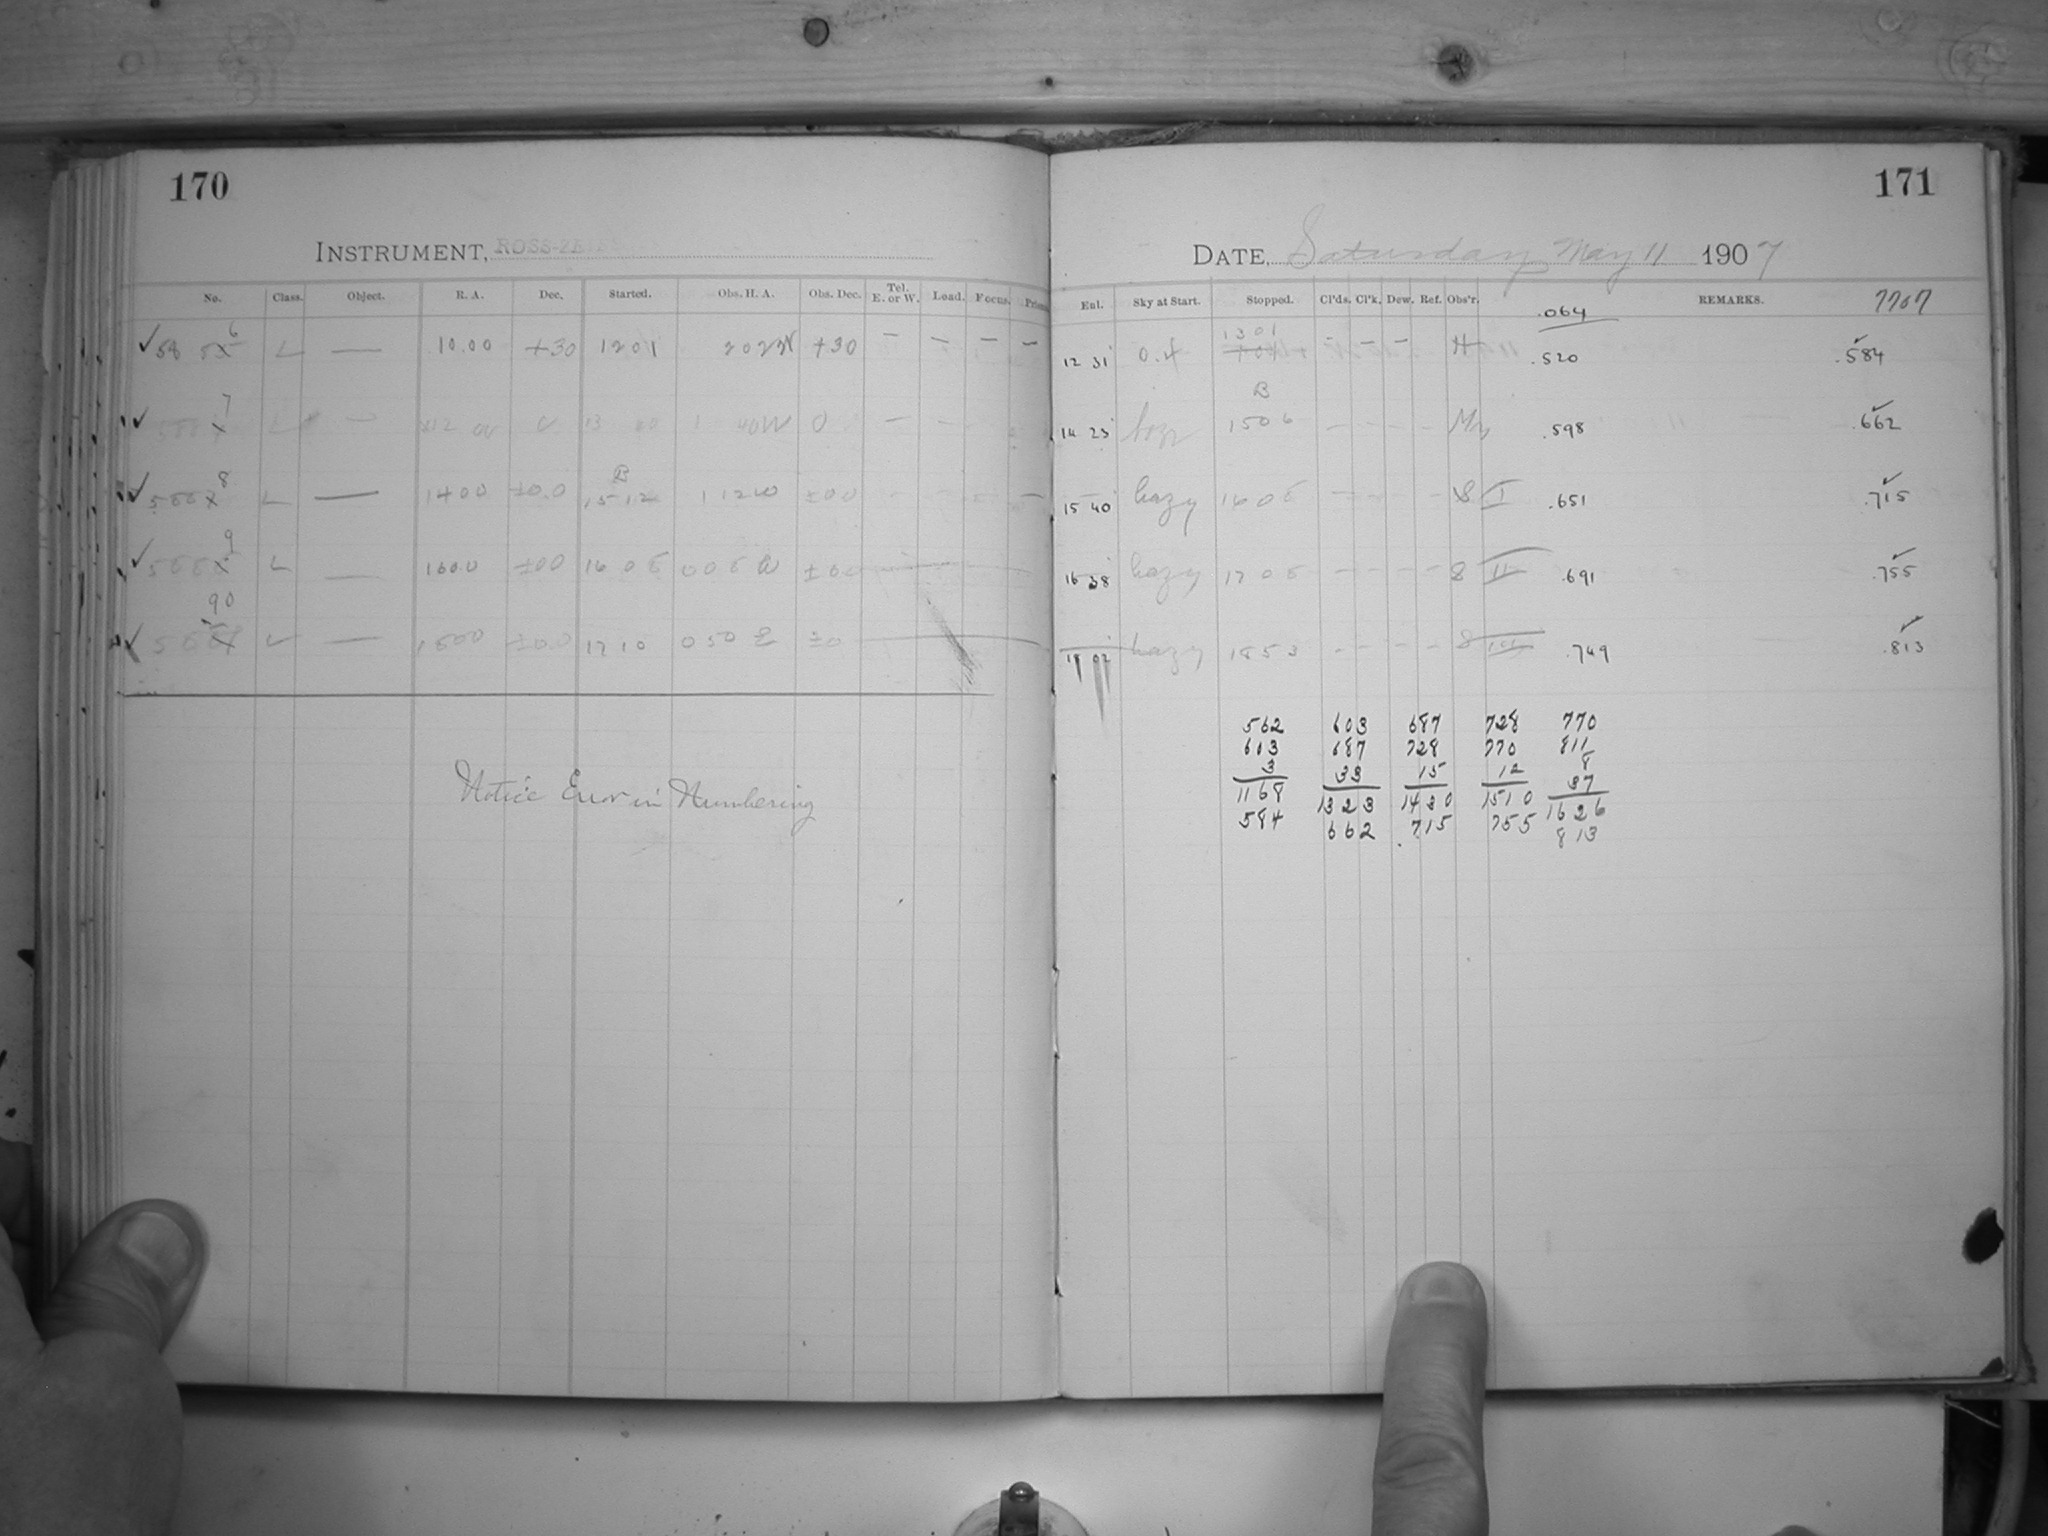 170
INSTRUMENT, ROSS-ZEISS
No. Class. Object. R. A. Dec. Started. Obs. H. A. Obs. Dec. Tel. E. or W. Load. Focus. Prism
6
L — 10.00 +30 1201 2 02 W +30 — — — —
7
0 13 1 40W 0 — —
8
B
L — 1400 ±0.0 15 12 1 12 W ±00
9
L — 1600 ±00 16 08 0 08 W ±00
90
L — 1800 ±0.0 17 10 0 50 E ±0
Notice Error in Numbering
171
DATE, Saturday May 11 1907
Ent. Sky at Start. Stopped. Cl'ds. Cl'k. Dew. Ref. Obs'r. REMARKS. 7707
.064
1301
12 31 0.4 - - - H .520 .584
B
14 23 1506 - - - - .598 .662
15 40 hazy 1608 - - - - S I .651 .715
16 38 hazy 1708 - - - - S II .691 .755
18 02 hazy 1853 - - - - S III .749 .813
562 603 687 728 770
603 687 728 770 811
8
3 33 15 12 37
1168 1323 1430 1510 1626
584 662 .715 755 813